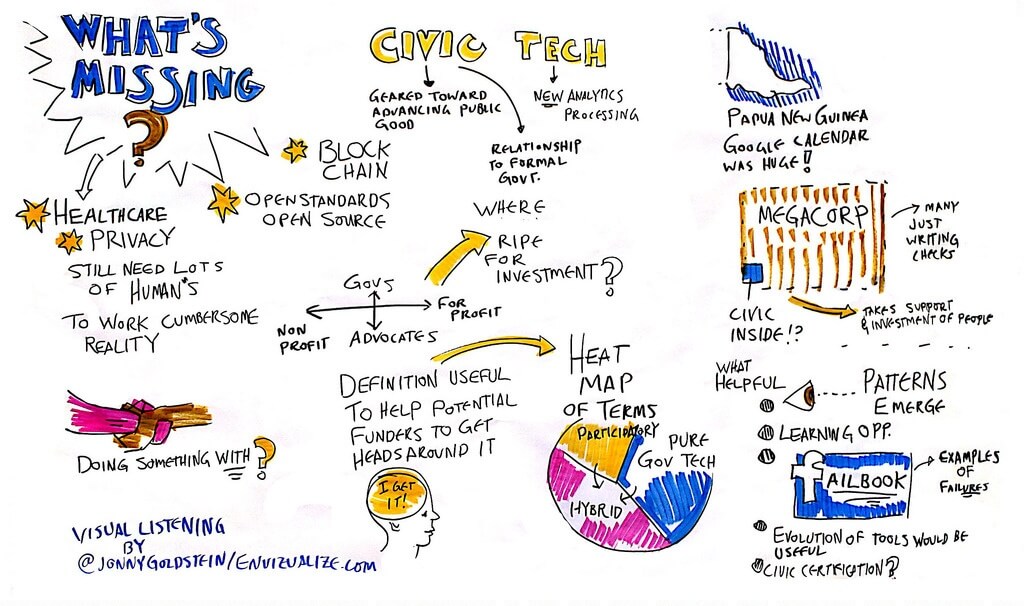 WHAT'S
MISSING
?
HEALTHCARE
PRIVACY
BLOCK
CHAIN
OPENSTANDARDS
OPEN SOURCE
STILL NEED LOTS
OF HUMAN'S
TO WORK CUMBERSOME
REALITY
DOING SOMETHING WITH?
VISUAL LISTENING
BY
@JONNYGOLDSTEIN/ENVIZUALIZE.COM
CIVIC TECH
GEARED TOWARD
ADVANCING PUBLIC
GOOD
NEW ANALYTICS
PROCESSING
RELATIONSHIP
TO FORMAL
GOVT.
WHERE
RIPE
FOR
INVESTMENT?
GOVS
FOR
PROFIT
NON
PROFIT
ADVOCATES
DEFINITION USEFUL
TO HELP POTENTIAL
FUNDERS TO GET
HEADS AROUND IT
I GET
IT!
HEAT
MAP
OF TERMS
PARTICIPATORY
PURE
GOV TECH
HYBRID
PAPUA NEW GUINEA
GOOGLE CALENDAR
WAS HUGE!
MEGACORP
MANY
JUST
WRITING
CHECKS
CIVIC
INSIDE!?
TAKES SUPPORT
& INVESTMENT OF PEOPLE
WHAT
HELPFUL
PATTERNS
EMERGE
LEARNING OPP.
FAILBOOK
EXAMPLES
OF
FAILURES
EVOLUTION OF TOOLS WOULD BE
USEFUL
CIVIC CERTIFICATION?